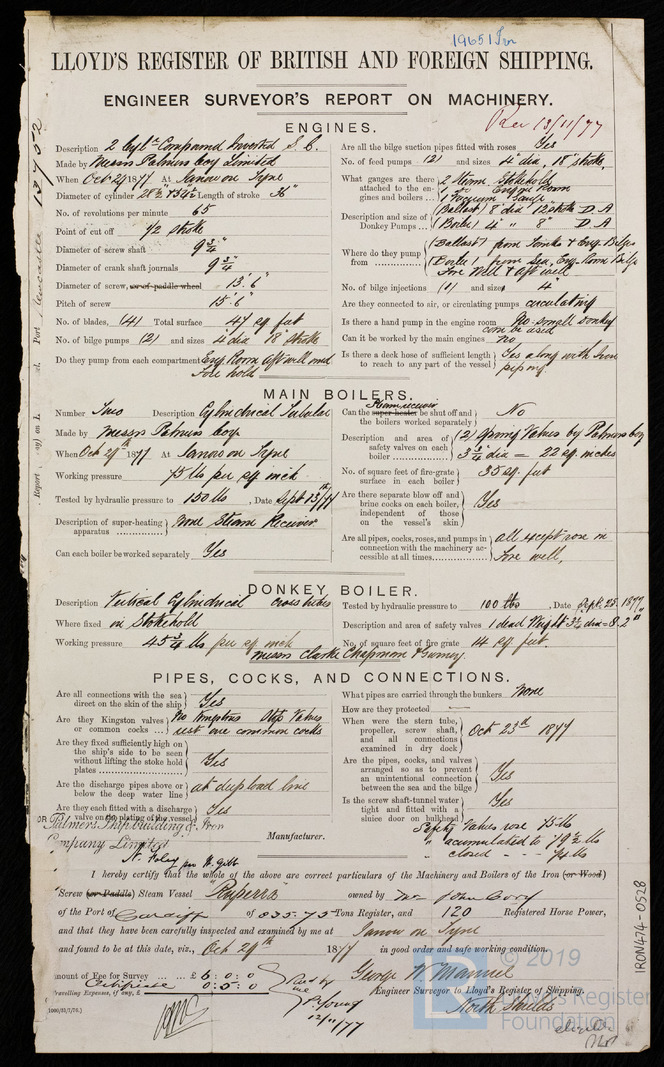 19651 Ir
LLOYD'S REGISTER OF BRITISH AND FOREIGN SHIPPING.
ENGINEER SURVEYOR'S REPORT ON MACHINERY.
Rec 13/11/77
13752
Port Newcastle
Report
ENGINES.
Description 2 Cylr Compound Inverted S.C.
Made by Messrs Palmers Coy Limited
When Oct 29 1877 At Jarrow on Tyne
Diameter of cylinder Length of stroke 36"
No. of revolutions per minute 65
Point of cut off 1/2 stroke
Diameter of screw shaft 9 3/4"
Diameter of crank shaft journals 9 3/4"
Diameter of screw, or of paddle wheel 13'.6"
Pitch of screw 15'.6"
No. of blades, (4) Total surface 47 sq feet
No. of bilge pumps (2) and sizes 4" dia 18" stroke
Do they pump from each compartment Eng Room aft well and
Fore hold
Are all the bilge suction pipes fitted with roses Yes
No. of feed pumps (2) and sizes 4" dia, 18" stroke.
What gauges are there attached to the engines and boilers 2 Steam Stokehold
1 " Engine Room
1 Vacuum Gauge
Description and size of Donkey Pumps (Ballast) 8" dia 12" stroke D.A
(Boiler) 4" " 8" D.A
Where do they pump from (Ballast) from Tanks & Eng. Bilges
(Boiler) from Sea, Eng. Room Bilges
Fore Well & Aft well
No. of bilge injections (1) and sizes 4"
Are they connected to air, or circulating pumps circulating
Is there a hand pump in the engine room No-small donkey
can be used
Can it be worked by the main engines No
Is there a deck hose of sufficient length to reach to any part of the vessel Yes along with Iron
piping
MAIN BOILERS.
Number Two Description Cylindrical Tubular
Made by Messrs Palmers Coy
When Oct 29th 1877 At Jarrow on Tyne
Working pressure 75 lbs per sq inch
Tested by hydraulic pressure to 150 lbs, Date Sept 13th/77
Description of super-heating apparatus None Steam Receiver
Can each boiler be worked separately Yes
Steam receiver
Can the super-heater be shut off and the boilers worked separately No
Description and area of safety valves on each boiler (2) Spring Valves by Palmers Coy
3 3/4 dia = 22 sq. inches
No. of square feet of fire-grate surface in each boiler 35 sq. feet
Are there separate blow off and brine cocks on each boiler, independent of those on the vessel's skin Yes
Are all pipes, cocks, roses, and pumps in connection with the machinery accessible at all times all except rose in
Fore well,
DONKEY BOILER.
Description Vertical Cylindrical cross tubes
Where fixed in Stokehold
Working pressure 45 3/4 lbs per sq inch
Tested by hydraulic pressure to 100 lbs, Date Sept. 25. 1877
Description and area of safety valves 1 dead Weight 3 1/4 dia = 8.2"
No. of square feet of fire grate 14 sq. feet.
Messrs Clarke Chapman & Gurney.
PIPES, COCKS, AND CONNECTIONS.
Are all connections with the sea direct on the skin of the ship Yes
Are they Kingston valves or common cocks No Kingstons Valves
rest are common cocks
Are they fixed sufficiently high on the ship's side to be seen without lifting the stoke hold plates Yes
Are the discharge pipes above or below the deep water line at deep load line
Are they each fitted with a discharge valve on the plating of the vessel Yes
What pipes are carried through the bunkers None
How are they protected
When were the stern tube, propeller, screw shaft, and all connections examined in dry dock Oct 23rd 1877
Are the pipes, cocks, and valves arranged so as to prevent an unintentional connection between the sea and the bilge Yes
Is the screw shaft-tunnel water tight and fitted with a sluice door on bulkhead Yes
Safety Valves rose 75 lbs
" accumulated to 79 1/2 lbs
" closed - - - 74 lbs
Palmers Shipbuilding & Iron
Company Limited Manufacturer.
N. Foley per W. Gibb
I hereby certify that the whole of the above are correct particulars of the Machinery and Boilers of the Iron (or Wood)
Screw (or Paddle) Steam Vessel "Ruperra" owned by Mr John Cory
of the Port of Cardiff of 835.75 Tons Register, and 120 Registered Horse Power,
and that they have been carefully inspected and examined by me at Jarrow on Tyne
and found to be at this date, viz., Oct 29th 1877 in good order and safe working condition.
Amount of Fee for Survey ... ... £6 : 0 : 0
Certificate 0 : 5 : 0
Travelling Expenses, if any, £
Recd by
me
Young
12/11/77
George W. Manuel
Engineer Surveyor to Lloyd's Register of Shipping.
North Shields
1000/31/7/76.)
IRON474-0528
© 2019
Lloyd's Register
Foundation